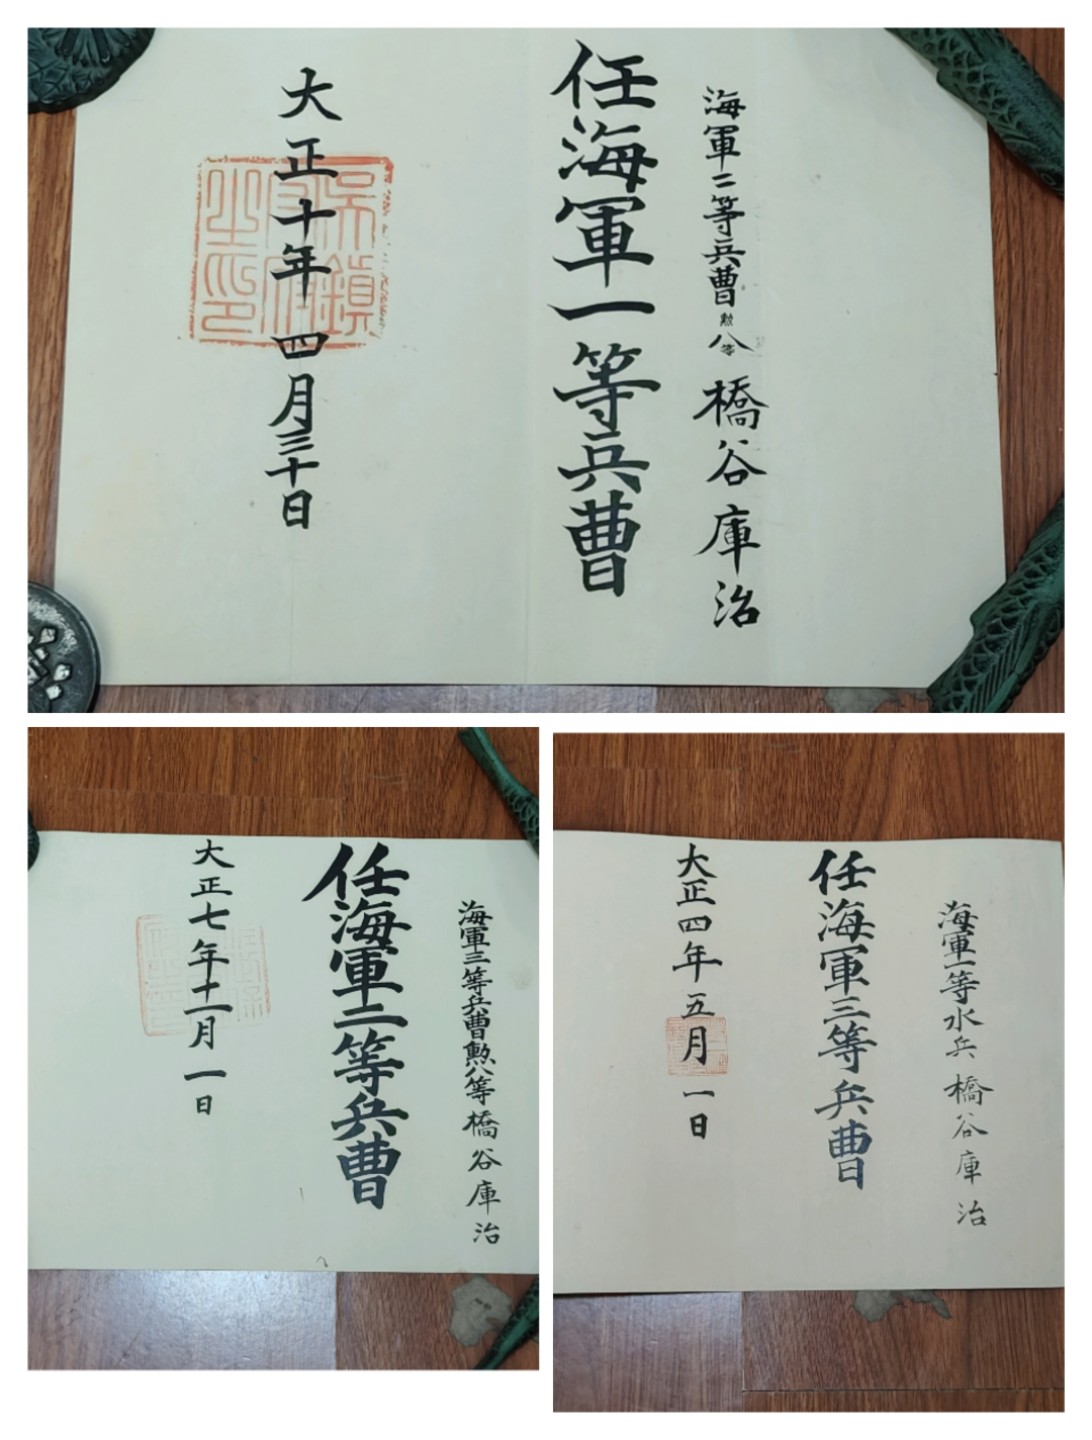 海軍二等兵曹勲八等 橋谷庫治
任海軍一等兵曹
大正十年四月三十日
呉鎮守府之印
海軍三等兵曹勲八等橋谷庫治
任海軍二等兵曹
大正七年十一月一日
海軍一等水兵 橋谷庫治
任海軍三等兵曹
大正四年五月一日